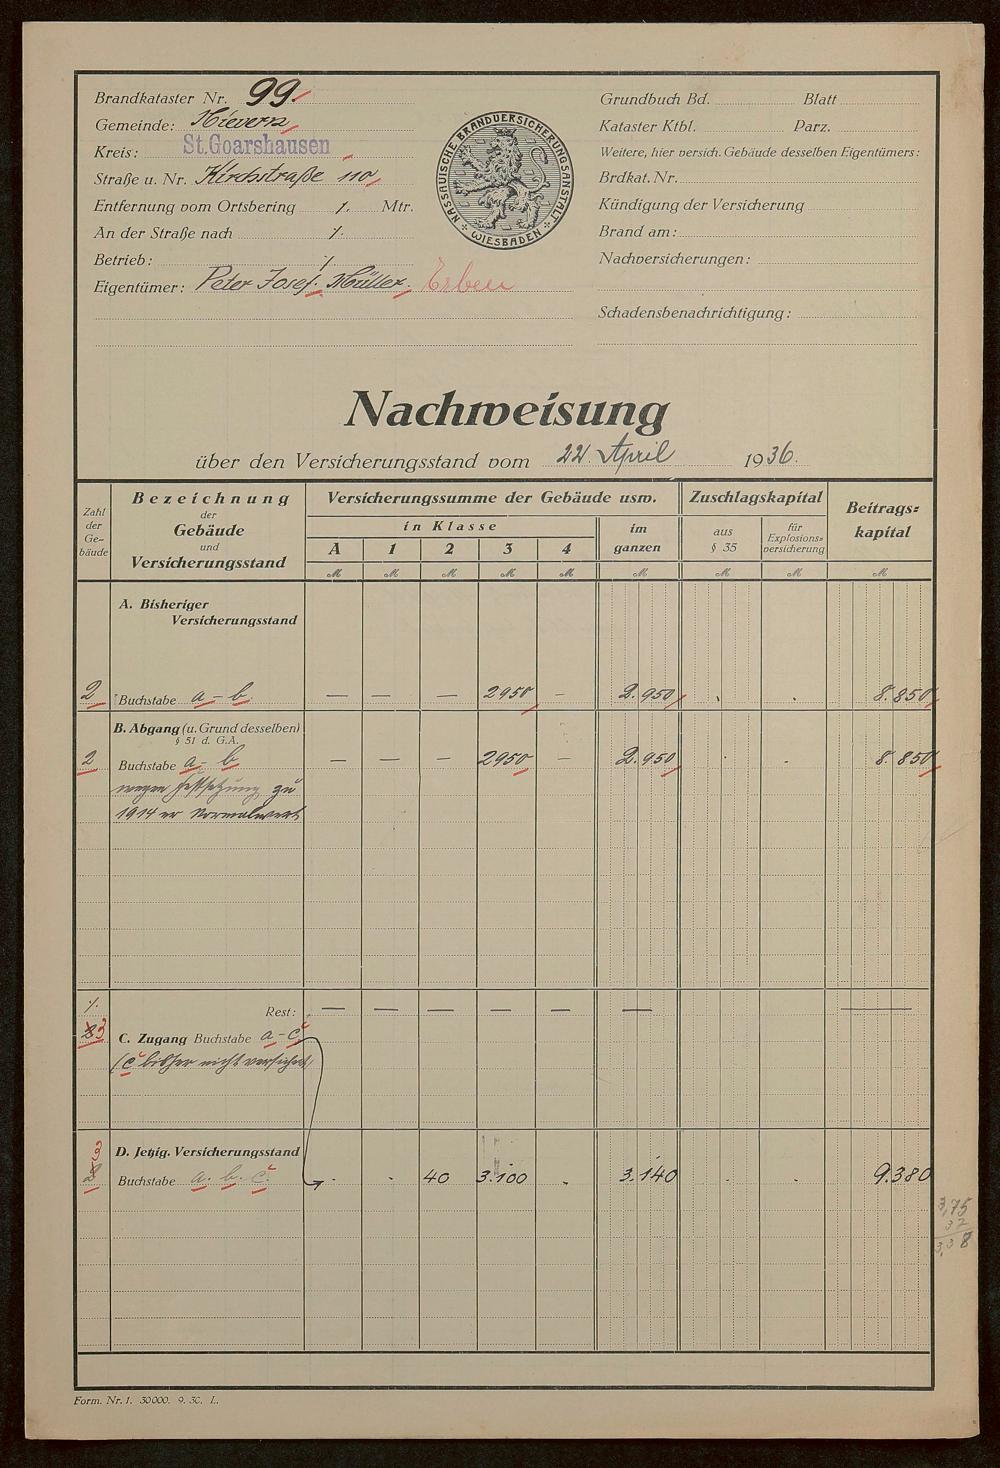 Brandkataster Nr. 99.
Gemeinde: Nievern
Kreis: St. Goarshausen
Straße u. Nr. Kirchstraße 110
Entfernung vom Ortsbering ·/. Mtr.
An der Straße nach ·/.
Betrieb: ·/.
Eigentümer: Peter Josef Müller. Erben
NASSAUISCHE BRANDVERSICHERUNGSANSTALT
WIESBADEN
Grundbuch Bd. Blatt
Kataster Ktbl. Parz.
Weitere, hier versich. Gebäude desselben Eigentümers:
Brdkat. Nr.
Kündigung der Versicherung
Brand am:
Nachversicherungen:
Schadensbenachrichtigung:
Nachweisung
über den Versicherungsstand vom 22. April 1936.
Zahl der Ge- bäude
Bezeichnung
der
Gebäude
und
Versicherungsstand
Versicherungssumme der Gebäude usw.
in Klasse
A 1 2 3 4
im ganzen
Zuschlagskapital
aus § 35
für Explosions- versicherung
Beitrags- kapital
M M M M M M M M M
A. Bisheriger
Versicherungsstand
2 Buchstabe a - b — — — 2950 – 2.950 . . 8.850
B. Abgang (u. Grund desselben)
§ 51 d. G.A.
2 Buchstabe a - b — — — 2950 – 2.950 . . 8.850
wegen Festsetzung zu
1914er Normalwert
·/. Rest: — — — — — — —
3 C. Zugang Buchstabe a - c
(c bisher nicht versichert)
D. Jetzig. Versicherungsstand
3 Buchstabe a. b. c . . 40 3.100 . 3.140 . . 9.380
3,75
37
3,38
Form. Nr. 1. 30000. 9. 30. L.